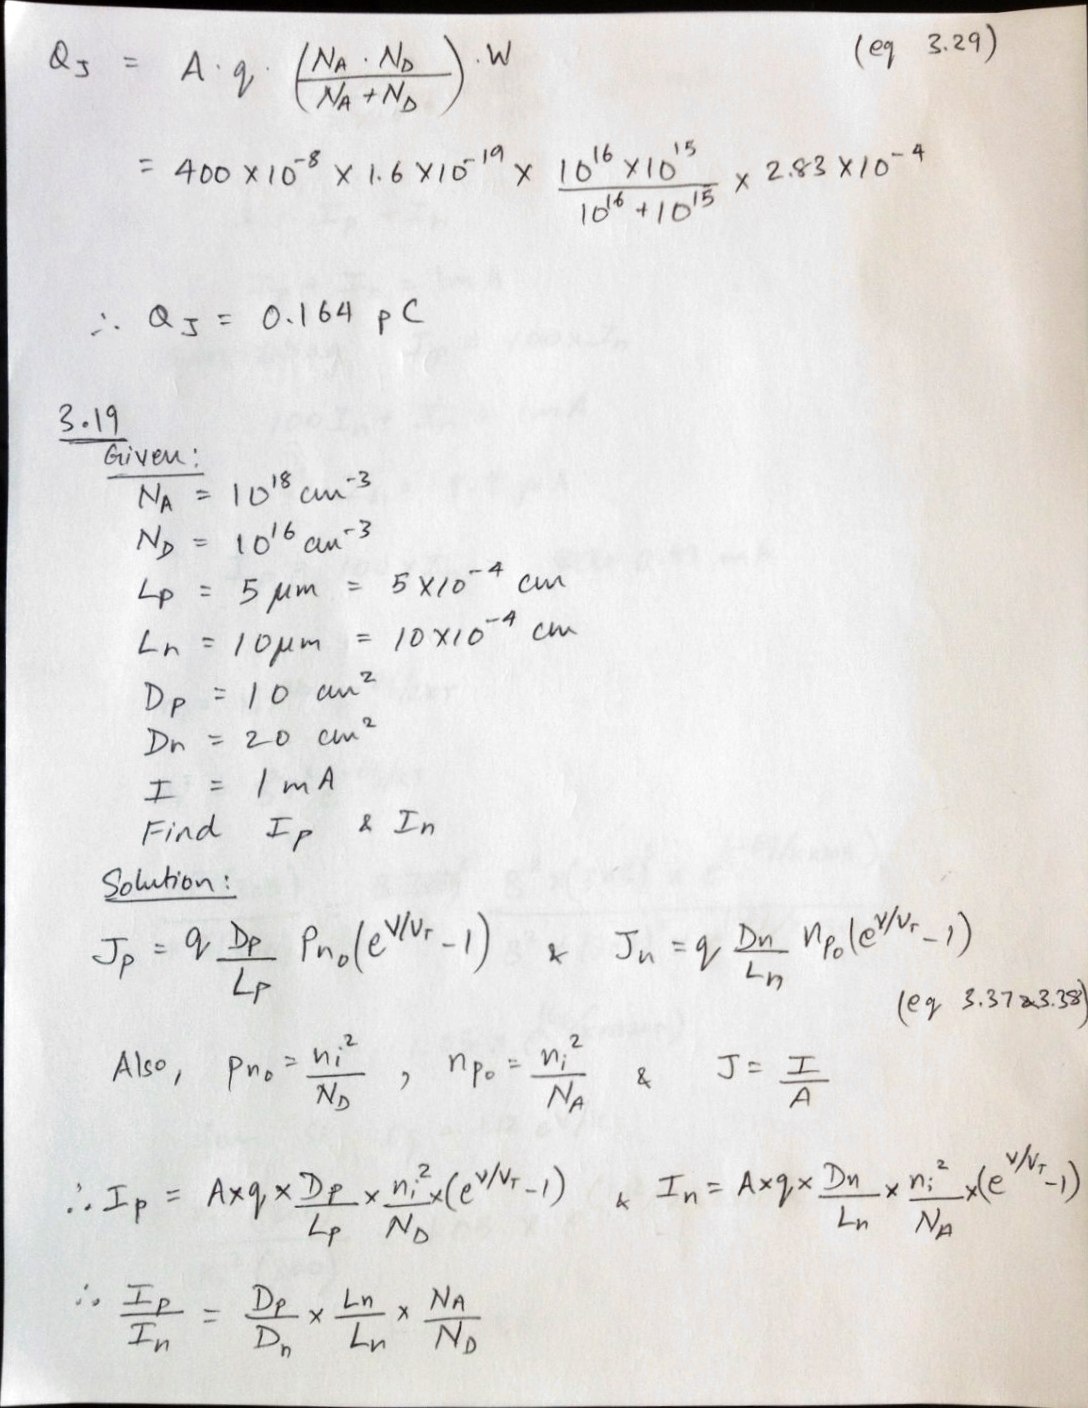 Q_J = A · q · (N_A · N_D / N_A + N_D) · W (eq 3.29)
= 400 × 10^-8 × 1.6 × 10^-19 × 10^16 × 10^15 / 10^16 + 10^15 × 2.83 × 10^-4
∴ Q_J = 0.164 pC
3.19
Given:
N_A = 10^18 cm^-3
N_D = 10^16 cm^-3
L_p = 5 μm = 5 × 10^-4 cm
L_n = 10 μm = 10 × 10^-4 cm
D_p = 10 cm^2
D_n = 20 cm^2
I = 1 mA
Find I_p & I_n
Solution:
J_p = q D_p / L_p P_no (e^V/V_T - 1) & J_n = q D_n / L_n n_po (e^V/V_T - 1)
(eq 3.37 & 3.38)
Also, P_no = n_i^2 / N_D , n_po = n_i^2 / N_A & J = I / A
∴ I_p = A × q × D_p / L_p × n_i^2 / N_D × (e^V/V_T - 1) & I_n = A × q × D_n / L_n × n_i^2 / N_A × (e^V/V_T - 1)
∴ I_p / I_n = D_p / D_n × L_n / L_n × N_A / N_D